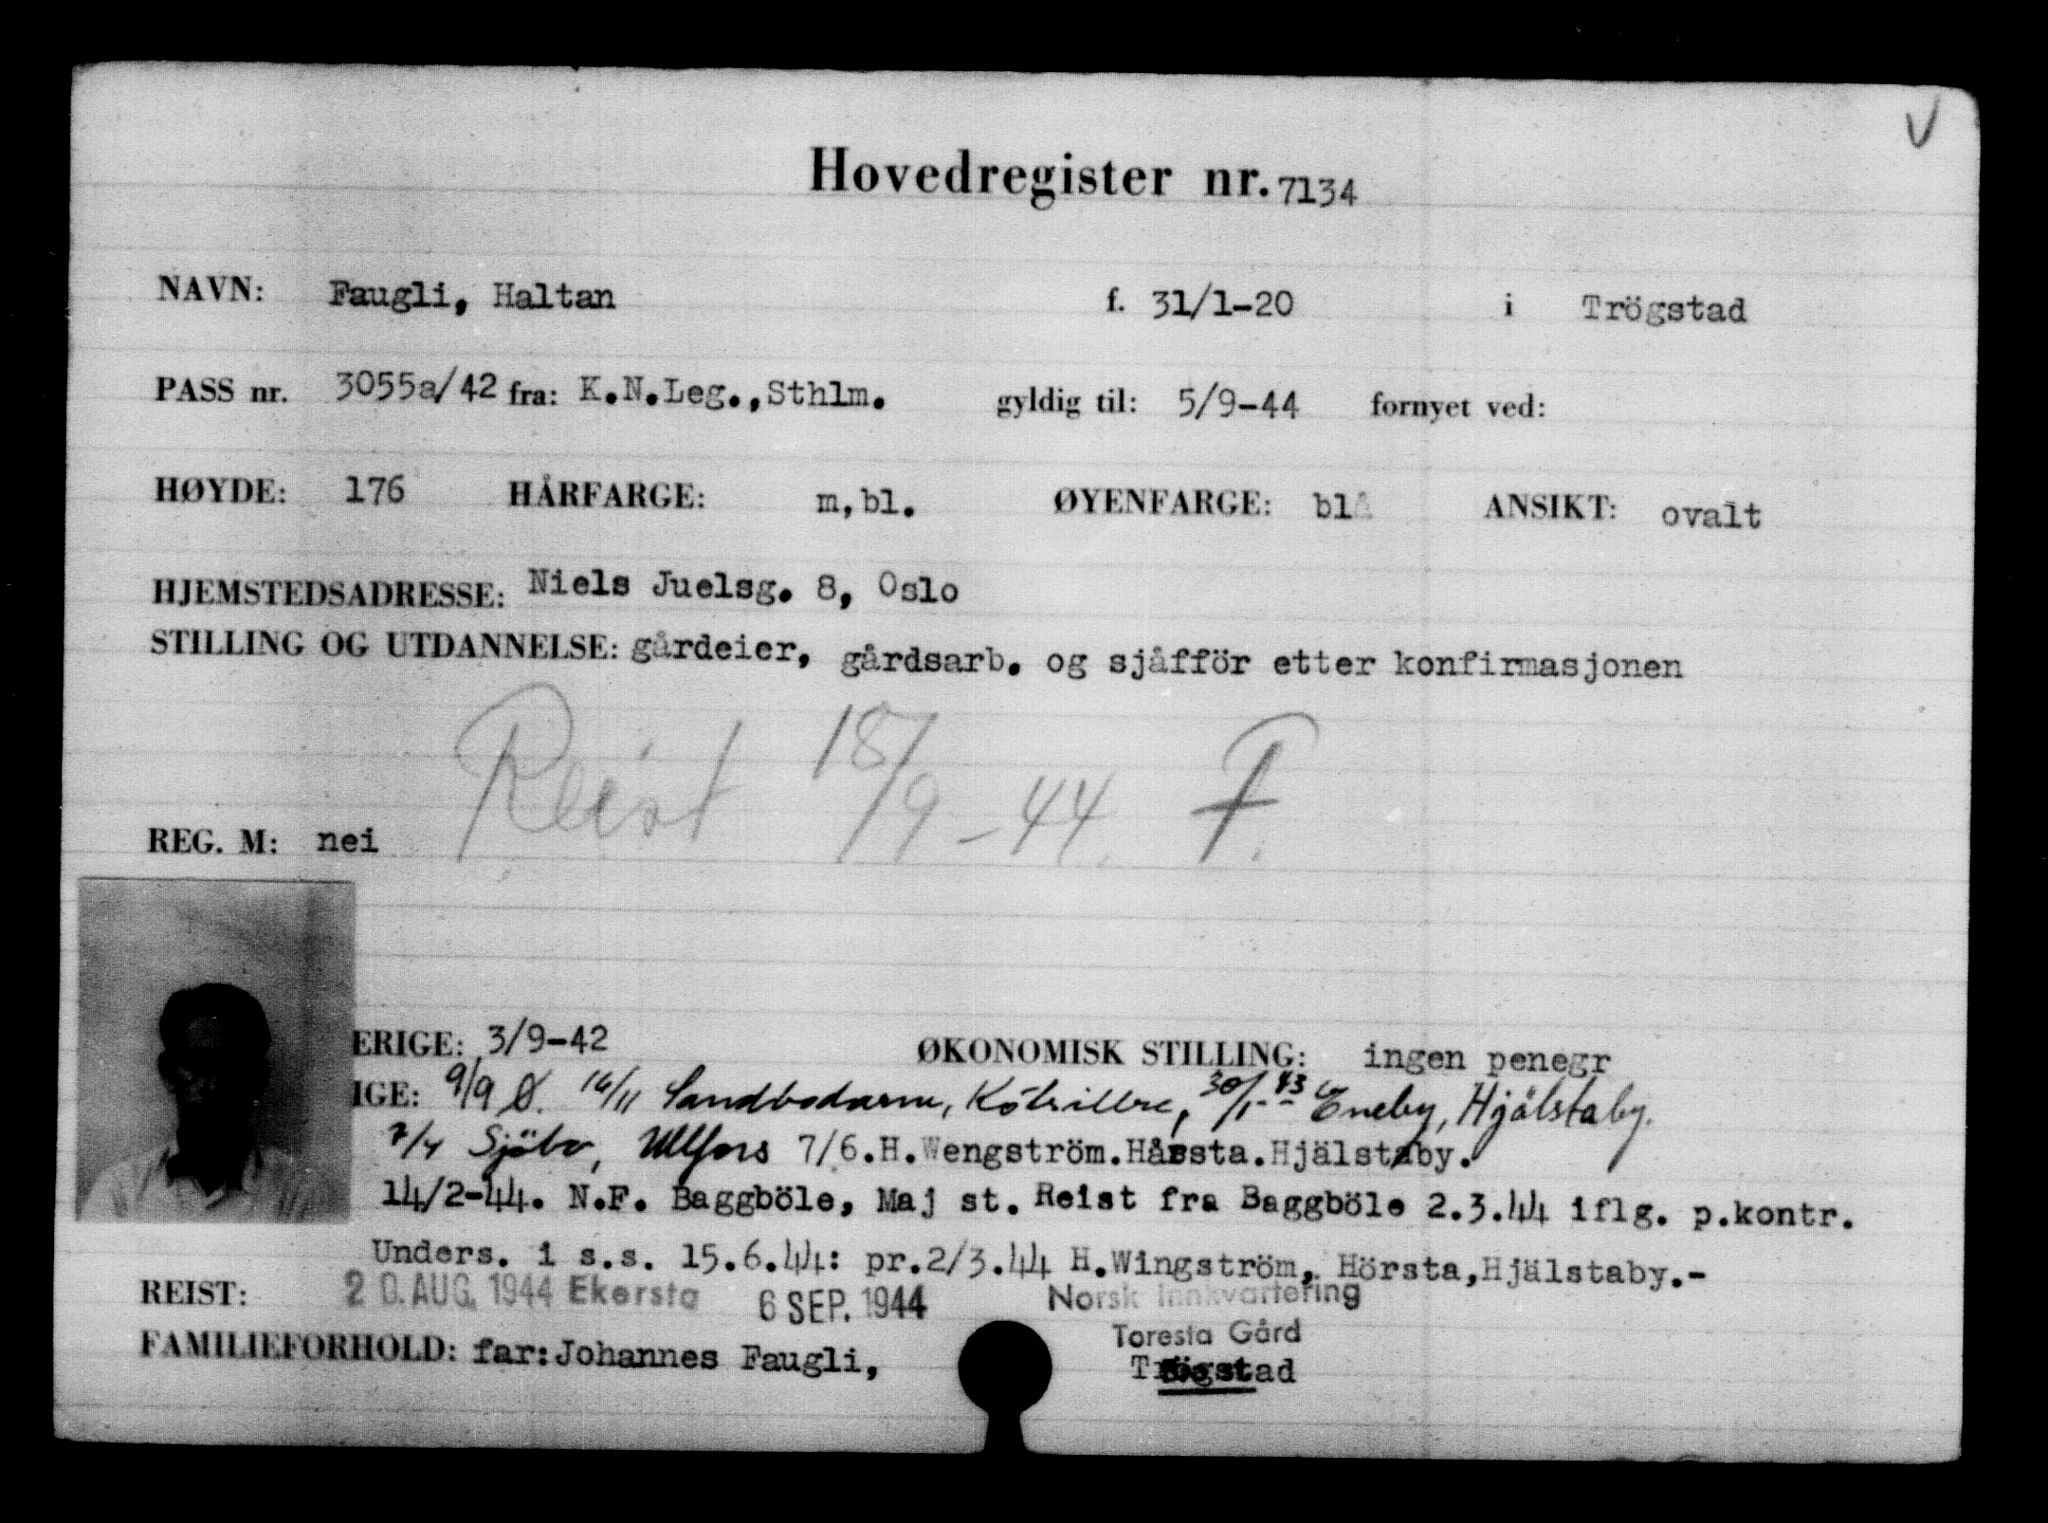 V
Hovedregister nr. 7134
NAVN: Faugli, Haltan f. 31/1-20 i Trögstad
PASS nr. 3055a/42 fra: K.N.Leg.,Sthlm. gyldig til: 5/9-44 fornyet ved:
HØYDE: 176 HÅRFARGE: m,bl. ØYENFARGE: blå ANSIKT: ovalt
HJEMSTEDSADRESSE: Niels Juelsg. 8, Oslo
STILLING OG UTDANNELSE: gårdeier, gårdsarb. og sjåfför etter konfirmasjonen
Reist 18/9-44. F.
REG. M: nei
ERIGE: 3/9-42 ØKONOMISK STILLING: ingen penegr
IGE: 9/9 Ø. 16/11 Sandbodarne, 30/1-43 Eneby, Hjälstaby.
7/4 Sjöbo, Ullfors 7/6.H.Wengström.Hårsta.Hjälstaby.
14/2-44. N.F. Baggböle, Maj st. Reist fra Baggböle 2.3.44 iflg. p.kontr.
Unders. i s.s. 15.6.44: pr.2/3.44 H.Wingström, Hörsta,Hjälstaby.-
REIST: 20. AUG. 1944 Ekersta 6 SEP. 1944 Norsk Innkvartering
Toresta Gård
FAMILIEFORHOLD: far: Johannes Faugli, Trögstad